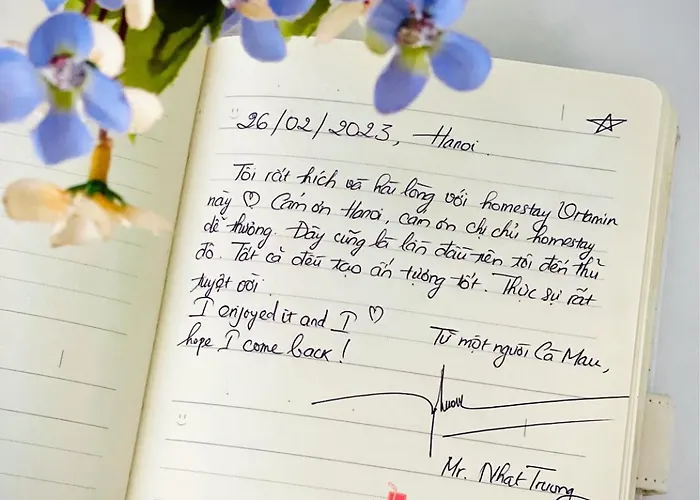 26/02/2023, Hanoi.
Tôi rất thích và hài lòng với homestay Vitamin
này ♡ Cảm ơn Hanoi, cảm ơn chị chủ homestay
dễ thương. Đây cũng là lần đầu tiên tôi đến thủ
đô. Tất cả đều tạo ấn tượng tốt. Thực sự rất
tuyệt vời.
I enjoyed it and I ♡
hope I come back!
Từ một người Cà Mau,
Mr. Nhat Truong